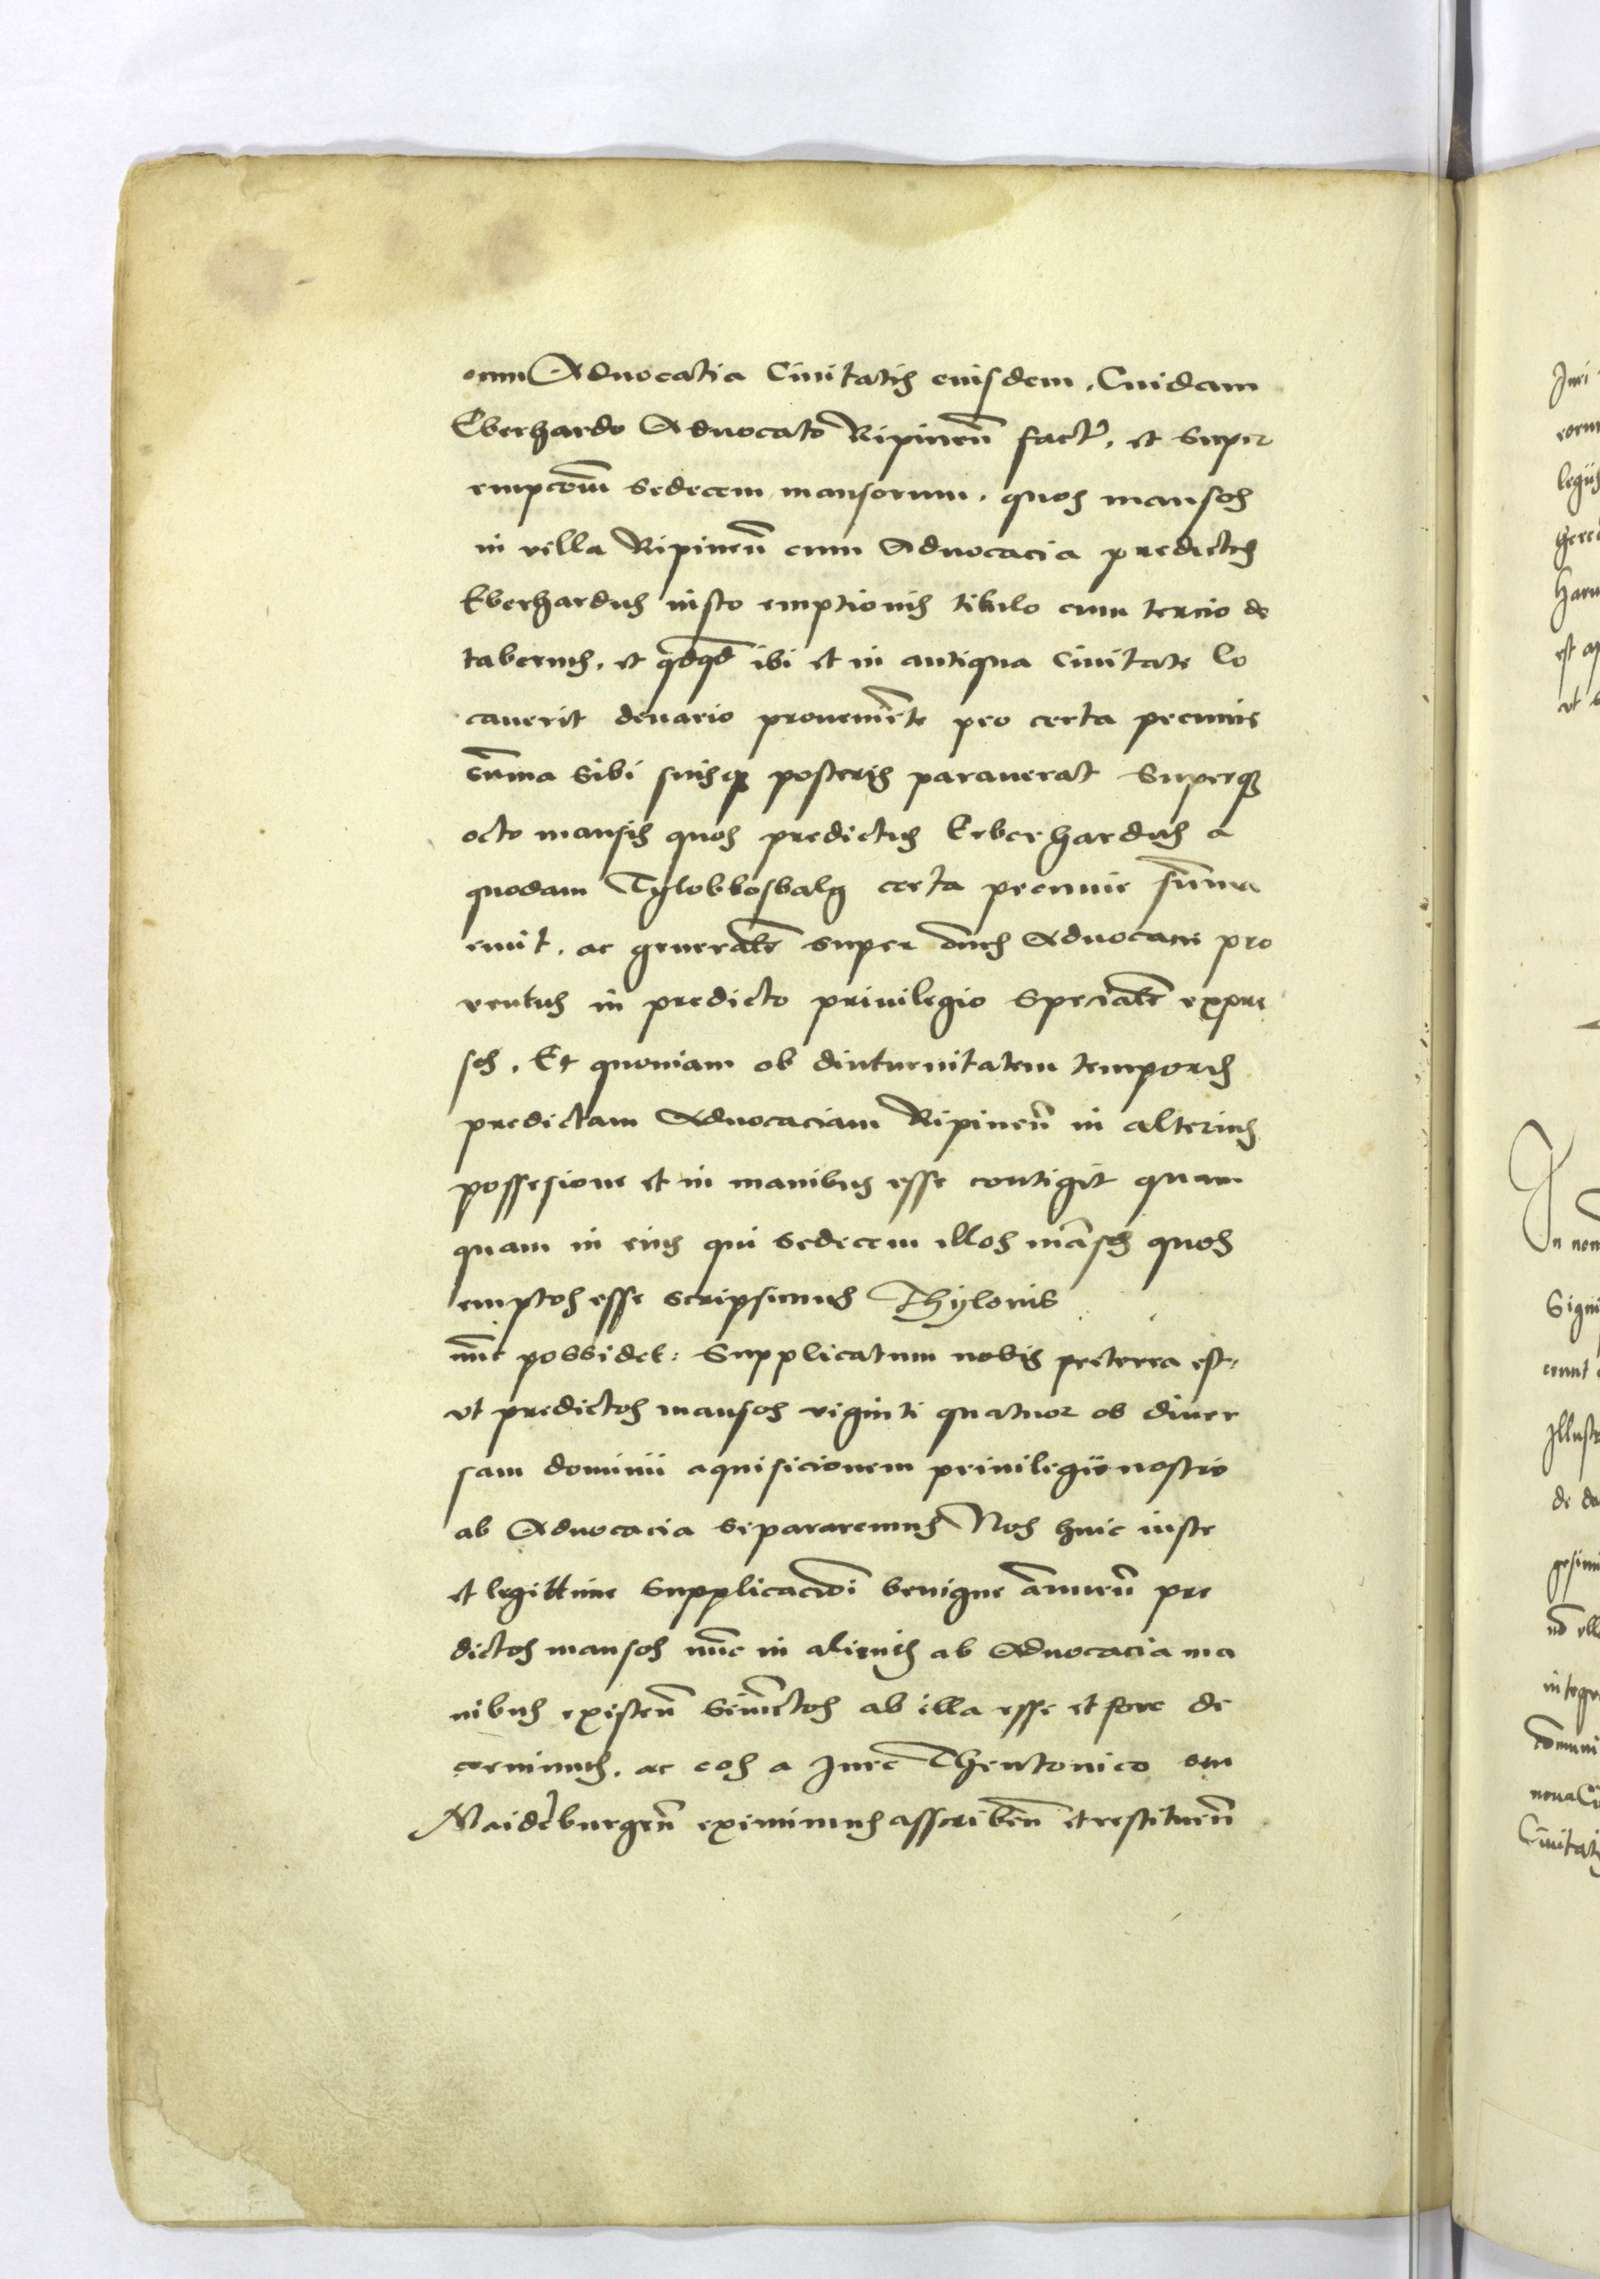 cum Aduocatia Ciuitatis eiusdem, Cuidam
Eberhardo Aduocato Ripinen̄ fact̓, et Super
empcōm̄ sedecem mansorum. quos mansos
in villa Ripinen̄ cum Aduocacia predictis
Eberhardus iusto emptionis titulo cum tercio de
tabernis, et qdqd̄ ibi et in antiqua Ciuitate lo
cauerit denario proueniēte pro certa pecunie
sūma sibi suisqꝫ posteris parauerat Superqꝫ
octo mansis quos predictus Erberhardus a
quodam Tylobbosbalg certa pecunie sūma
emit. ac generalr̄ super om̄es Aduocacie pro
uentus in predicto priuilegio specialr̄ expre
sos. Et quoniam ob diuturnitatem temporis
predictam Aduocaciam Ripinen̄ in alterius
possesione et in manibus esse contigit quam
quam in eius qui sedecem illos māsos quos
emptos esse scripsimus Thylonis
nūc possidet: Supplicatum nobis preterea est,
vt predictos mansos viginti quatuor ob diuer
sam dominii aquisicionem priuilegiis nostro
ab Aduocacia separaremus Nos huic iuste
et legittime Supplicacōi benigne ānuen̄ pre
dictos mansos nūc in alienis ab Aduocacia ma
nibus existen̄ seiūctos ab illa esse et fore de
cernimus. ac eos a Jure Theutonico seu
Maideburgen̄ eximimus asscriben̄ et restituen̄
Juri
legiis
est
vt
In nom
Signi
Illustr
de
Ciuitati